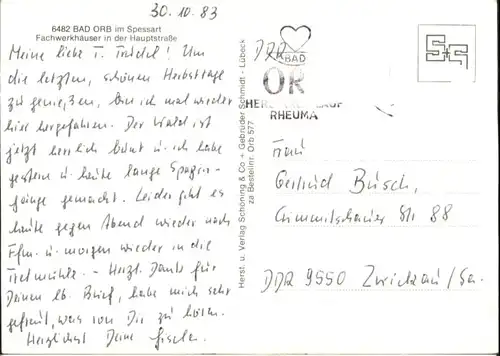 30.10.83
6482 BAD ORB im Spessart
Fachwerkhäuser in der Hauptstraße
Meine liebe T. Trudel! Um
die letzten, schönen Herbsttage
zu genießen, bin ich mal wieder
hier hergefahren. Der Wald ist
jetzt herrlich bunt u. ich habe
gestern u. heute lange Spazier-
gänge gemacht. Leider geht es
heute gegen Abend wieder nach
Ffm. u. morgen wieder in die
Tretmühle. - Herzl. Dank für
Deinen lb. Brief, habe mich sehr
gefreut, was von Dir zu hören.
Herzlichst Deine Gisela.
Herst. u. Verlag Schöning & Co + Gebrüder Schmidt - Lübeck
za Bestellnr. Orb 577
DDR
BAD
OR
HER
AUF
RHEUMA
S+G
Frau
Gertrud Büsch,
Crimmitschauer Str. 88
DDR 9550 Zwickau/Sa.